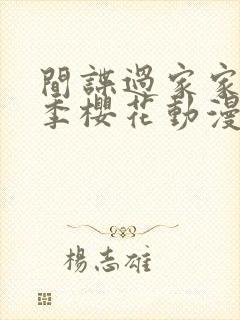 間諜過家家
季櫻花動漫
楊志雄